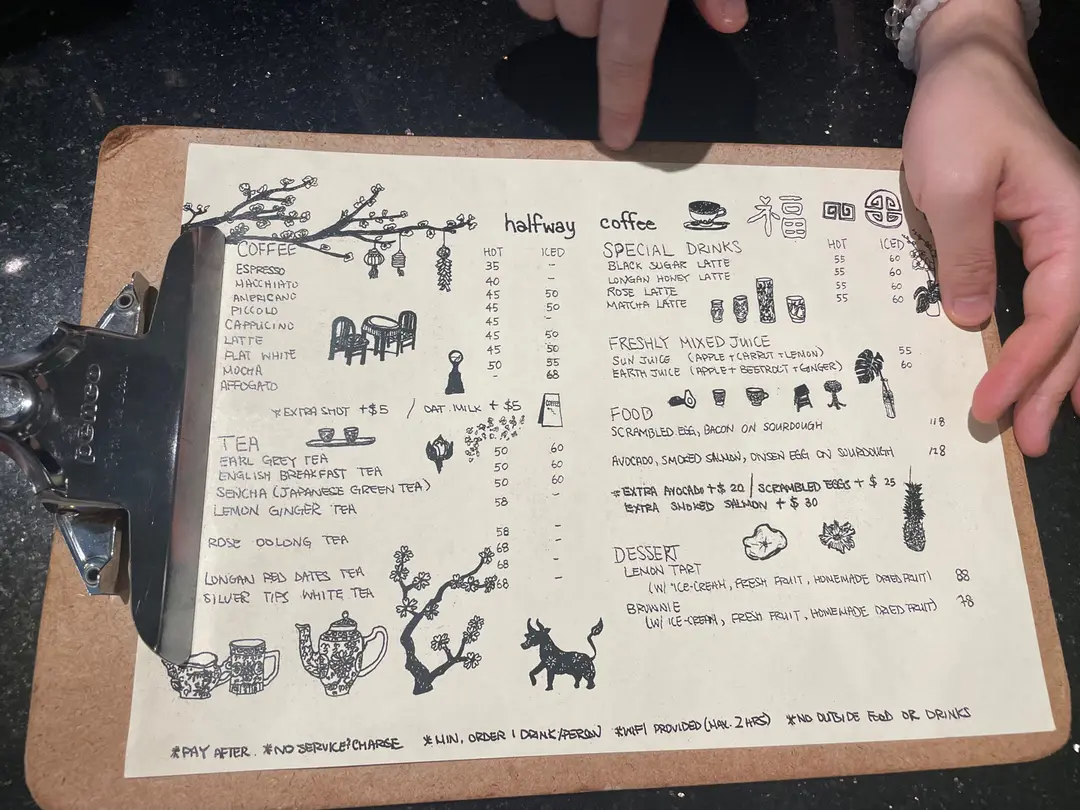 halfway coffee 福
COFFEE HOT ICED
ESPRESSO 35 -
MACCHIATO 40 -
AMERICANO 45 50
PICCOLO 45 50
CAPPUCINO 45 -
LATTE 45 50
FLAT WHITE 45 50
MOCHA 50 55
AFFOGATO - 68
*EXTRA SHOT +$5 / OAT MILK +$5
COFFEE
TEA
EARL GREY TEA 50 60
ENGLISH BREAKFAST TEA 50 60
SENCHA (JAPANESE GREEN TEA) 50 60
LEMON GINGER TEA 58 -
ROSE OOLONG TEA 58 -
68 -
LONGAN RED DATES TEA 68
SILVER TIPS WHITE TEA 68 -
SPECIAL DRINKS HOT ICED
BLACK SUGAR LATTE 55 60
LONGAN HONEY LATTE 55 60
ROSE LATTE 55 60
MATCHA LATTE 55 60
FRESHLY MIXED JUICE
SUN JUICE (APPLE+CARROT+LEMON) 55
EARTH JUICE (APPLE+BEETROOT+GINGER) 60
FOOD
SCRAMBLED EGG, BACON ON SOURDOUGH 118
AVOCADO, SMOKED SALMON, ONSEN EGG ON SOURDOUGH 128
*EXTRA AVOCADO +$20 / SCRAMBLED EGGS +$25
EXTRA SMOKED SALMON +$30
DESSERT
LEMON TART
(W/ ICE-CREAM, FRESH FRUIT, HOMEMADE DRIED FRUIT) 88
BROWNIE
(W/ ICE-CREAM, FRESH FRUIT, HOMEMADE DRIED FRUIT) 78
*PAY AFTER. *NO SERVICE CHARGE *MIN. ORDER 1 DRINK/PERSON *WIFI PROVIDED (MAX. 2 HRS) *NO OUTSIDE FOOD OR DRINKS